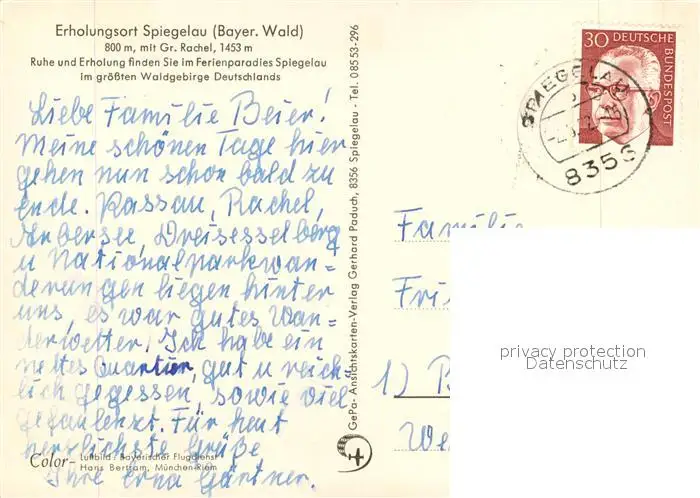 Erholungsort Spiegelau (Bayer. Wald)
800 m, mit Gr. Rachel, 1453 m
Ruhe und Erholung finden Sie im Ferienparadies Spiegelau
im größten Waldgebirge Deutschlands
Liebe Familie Beier!
Meine schönen Tage hier
gehen nun schon bald zu
ende. Passau, Rachel,
Arbersee, Dreisesselberg
u Nationalparkwan=
derungen liegen hinter
uns, es war gutes Wan=
derwetter. Ich habe ein
nettes Quartier, gut u reich
lich gegessen, sowie viel
gefaulenzt. Für heut
herzlichste Grüße
Ihre Erna Gärtner.
Color- Luftbild: Bayerischer Flugdienst
Hans Bertram, München-Riem
GePa- Ansichtskarten-Verlag Gerhard Paduch, 8356 Spiegelau - Tel. 08553-296
30 DEUTSCHE
BUNDESPOST
SPIEGELAU
8356
Familie
Fri
1) B
We
privacy protection
Datenschutz